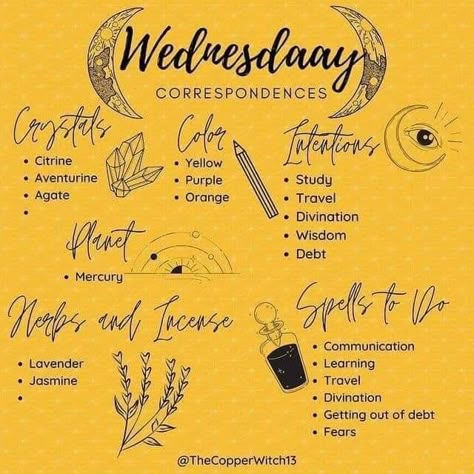 Wednesdaay
CORRESPONDENCES
Crystals
• Citrine
• Aventurine
• Agate
•
Color
• Yellow
• Purple
• Orange
Intentions
• Study
• Travel
• Divination
• Wisdom
• Debt
Planet
• Mercury
Herbs and Incense
• Lavender
• Jasmine
•
Spells to Do
• Communication
• Learning
• Travel
• Divination
• Getting out of debt
• Fears
@TheCopperWitch13